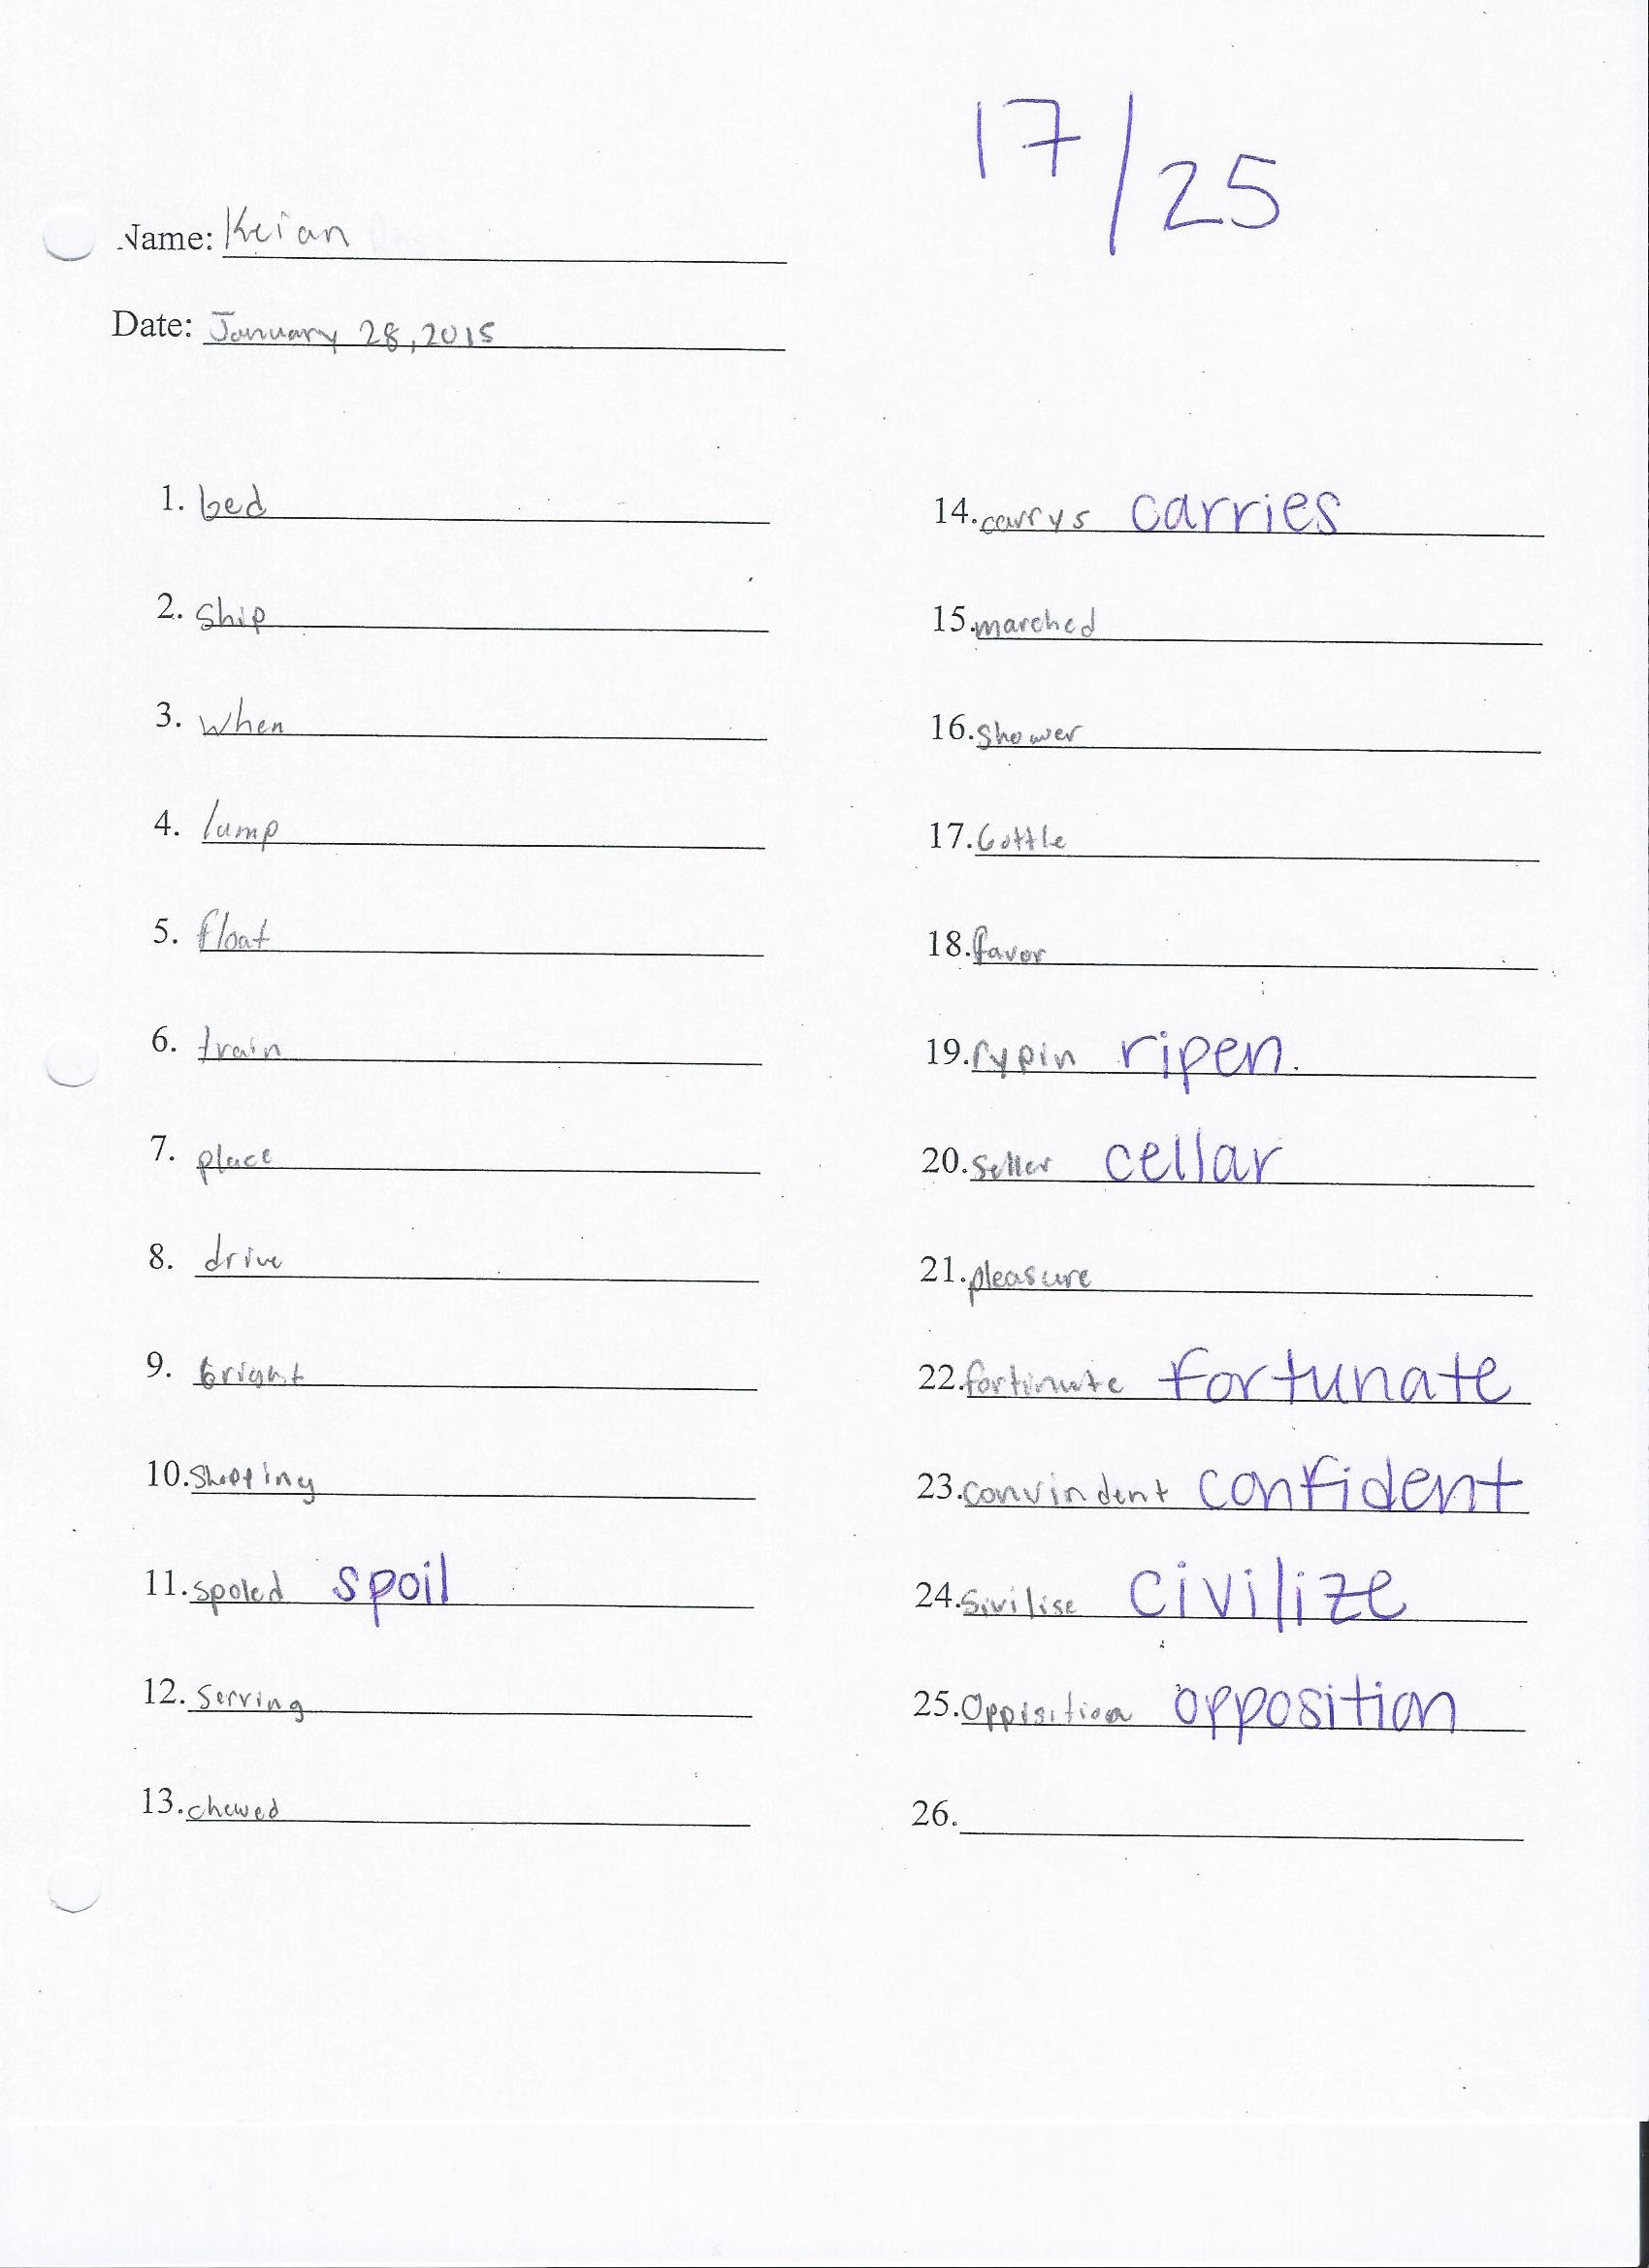 17/25
Name: Keian
Date: January 28, 2015
1. bed
2. ship
3. when
4. lump
5. float
6. train
7. place
8. drive
9. bright
10. shopping
11. spoled spoil
12. serving
13. chewed
14. carrys carries
15. marched
16. shower
17. bottle
18. favor
19. rypin ripen.
20. seller cellar
21. pleasure
22. fortinute fortunate
23. convindent confident
24. sivilise civilize
25. Oppisition opposition
26.